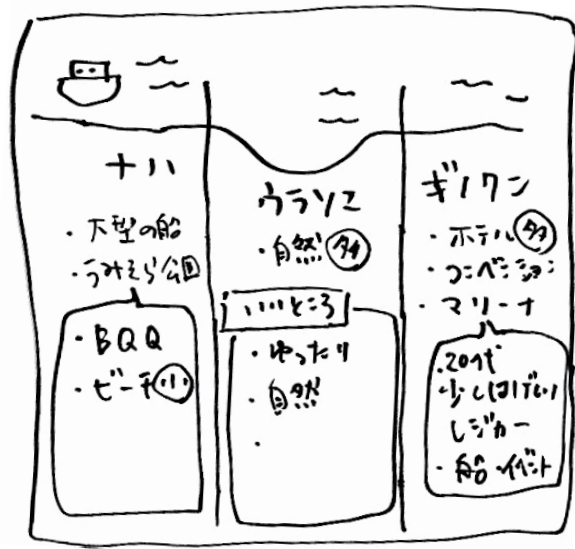 ナハ
・大型の船
・うみそら公園
・BQQ
・ビーチ小
ウラソエ
・自然 多
いいところ
・ゆったり
・自然
・
ギノワン
・ホテル 多
・コンベンション
・マリーナ
・20代
少しはげしい
レジャー
・船・イベント